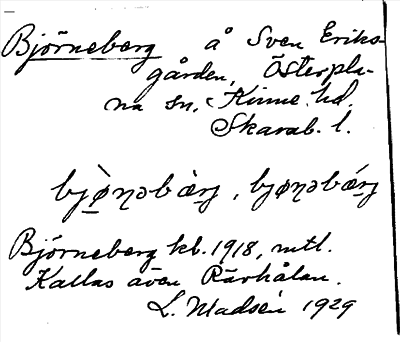 Björneberg å Sven Eriks-
gården, Österpla-
na sn, Kinne hd.
Skarab. l.
bjø̀ṇəbær̀j, bjøṇəbǽrj
Björneberg kb. 1918, mtl.
Kallas även Rävhålan.
L. Madsén 1929